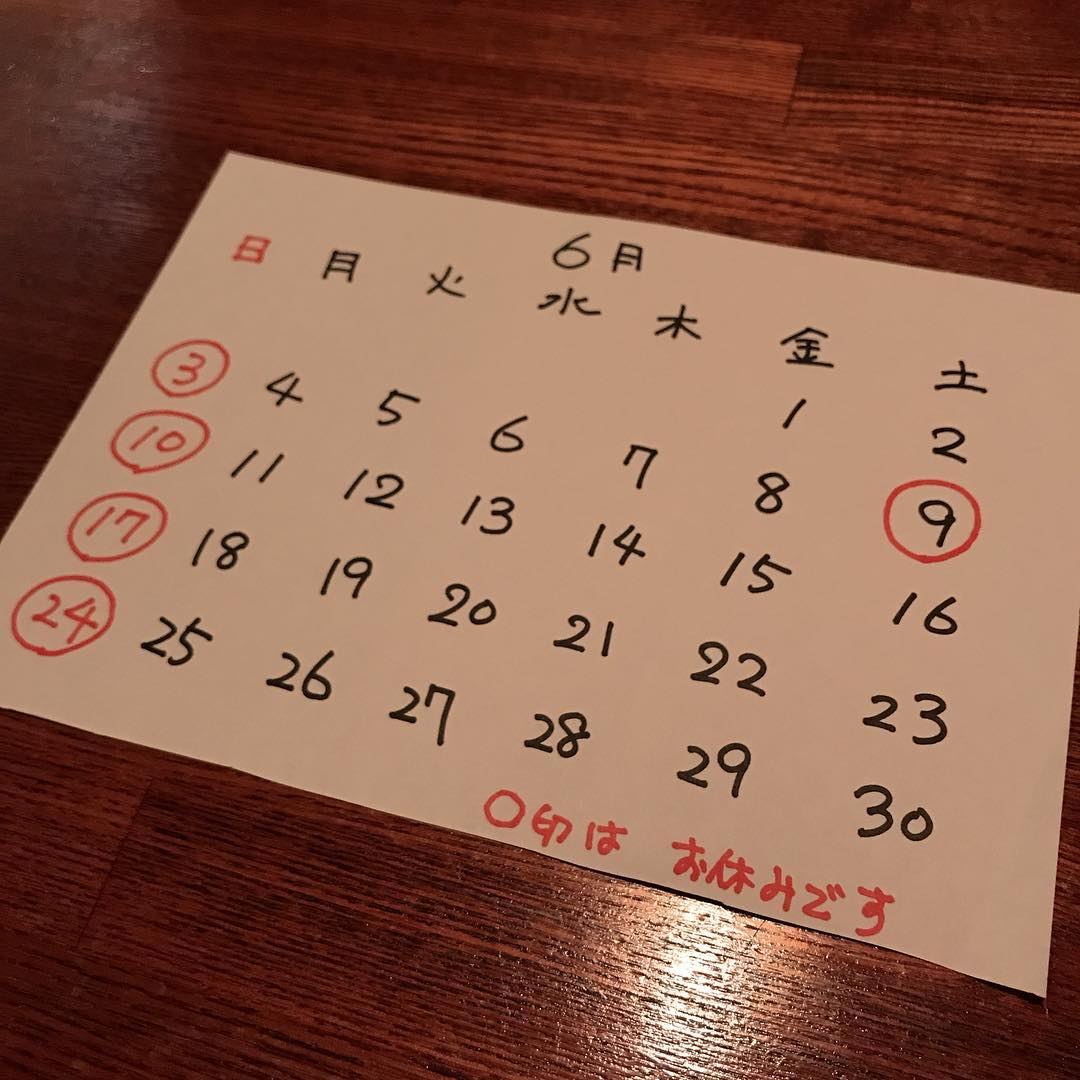 6月
日 月 火 水 木 金 土
1 2
3 4 5 6 7 8 9
10 11 12 13 14 15 16
17 18 19 20 21 22 23
24 25 26 27 28 29 30
○印は お休みです